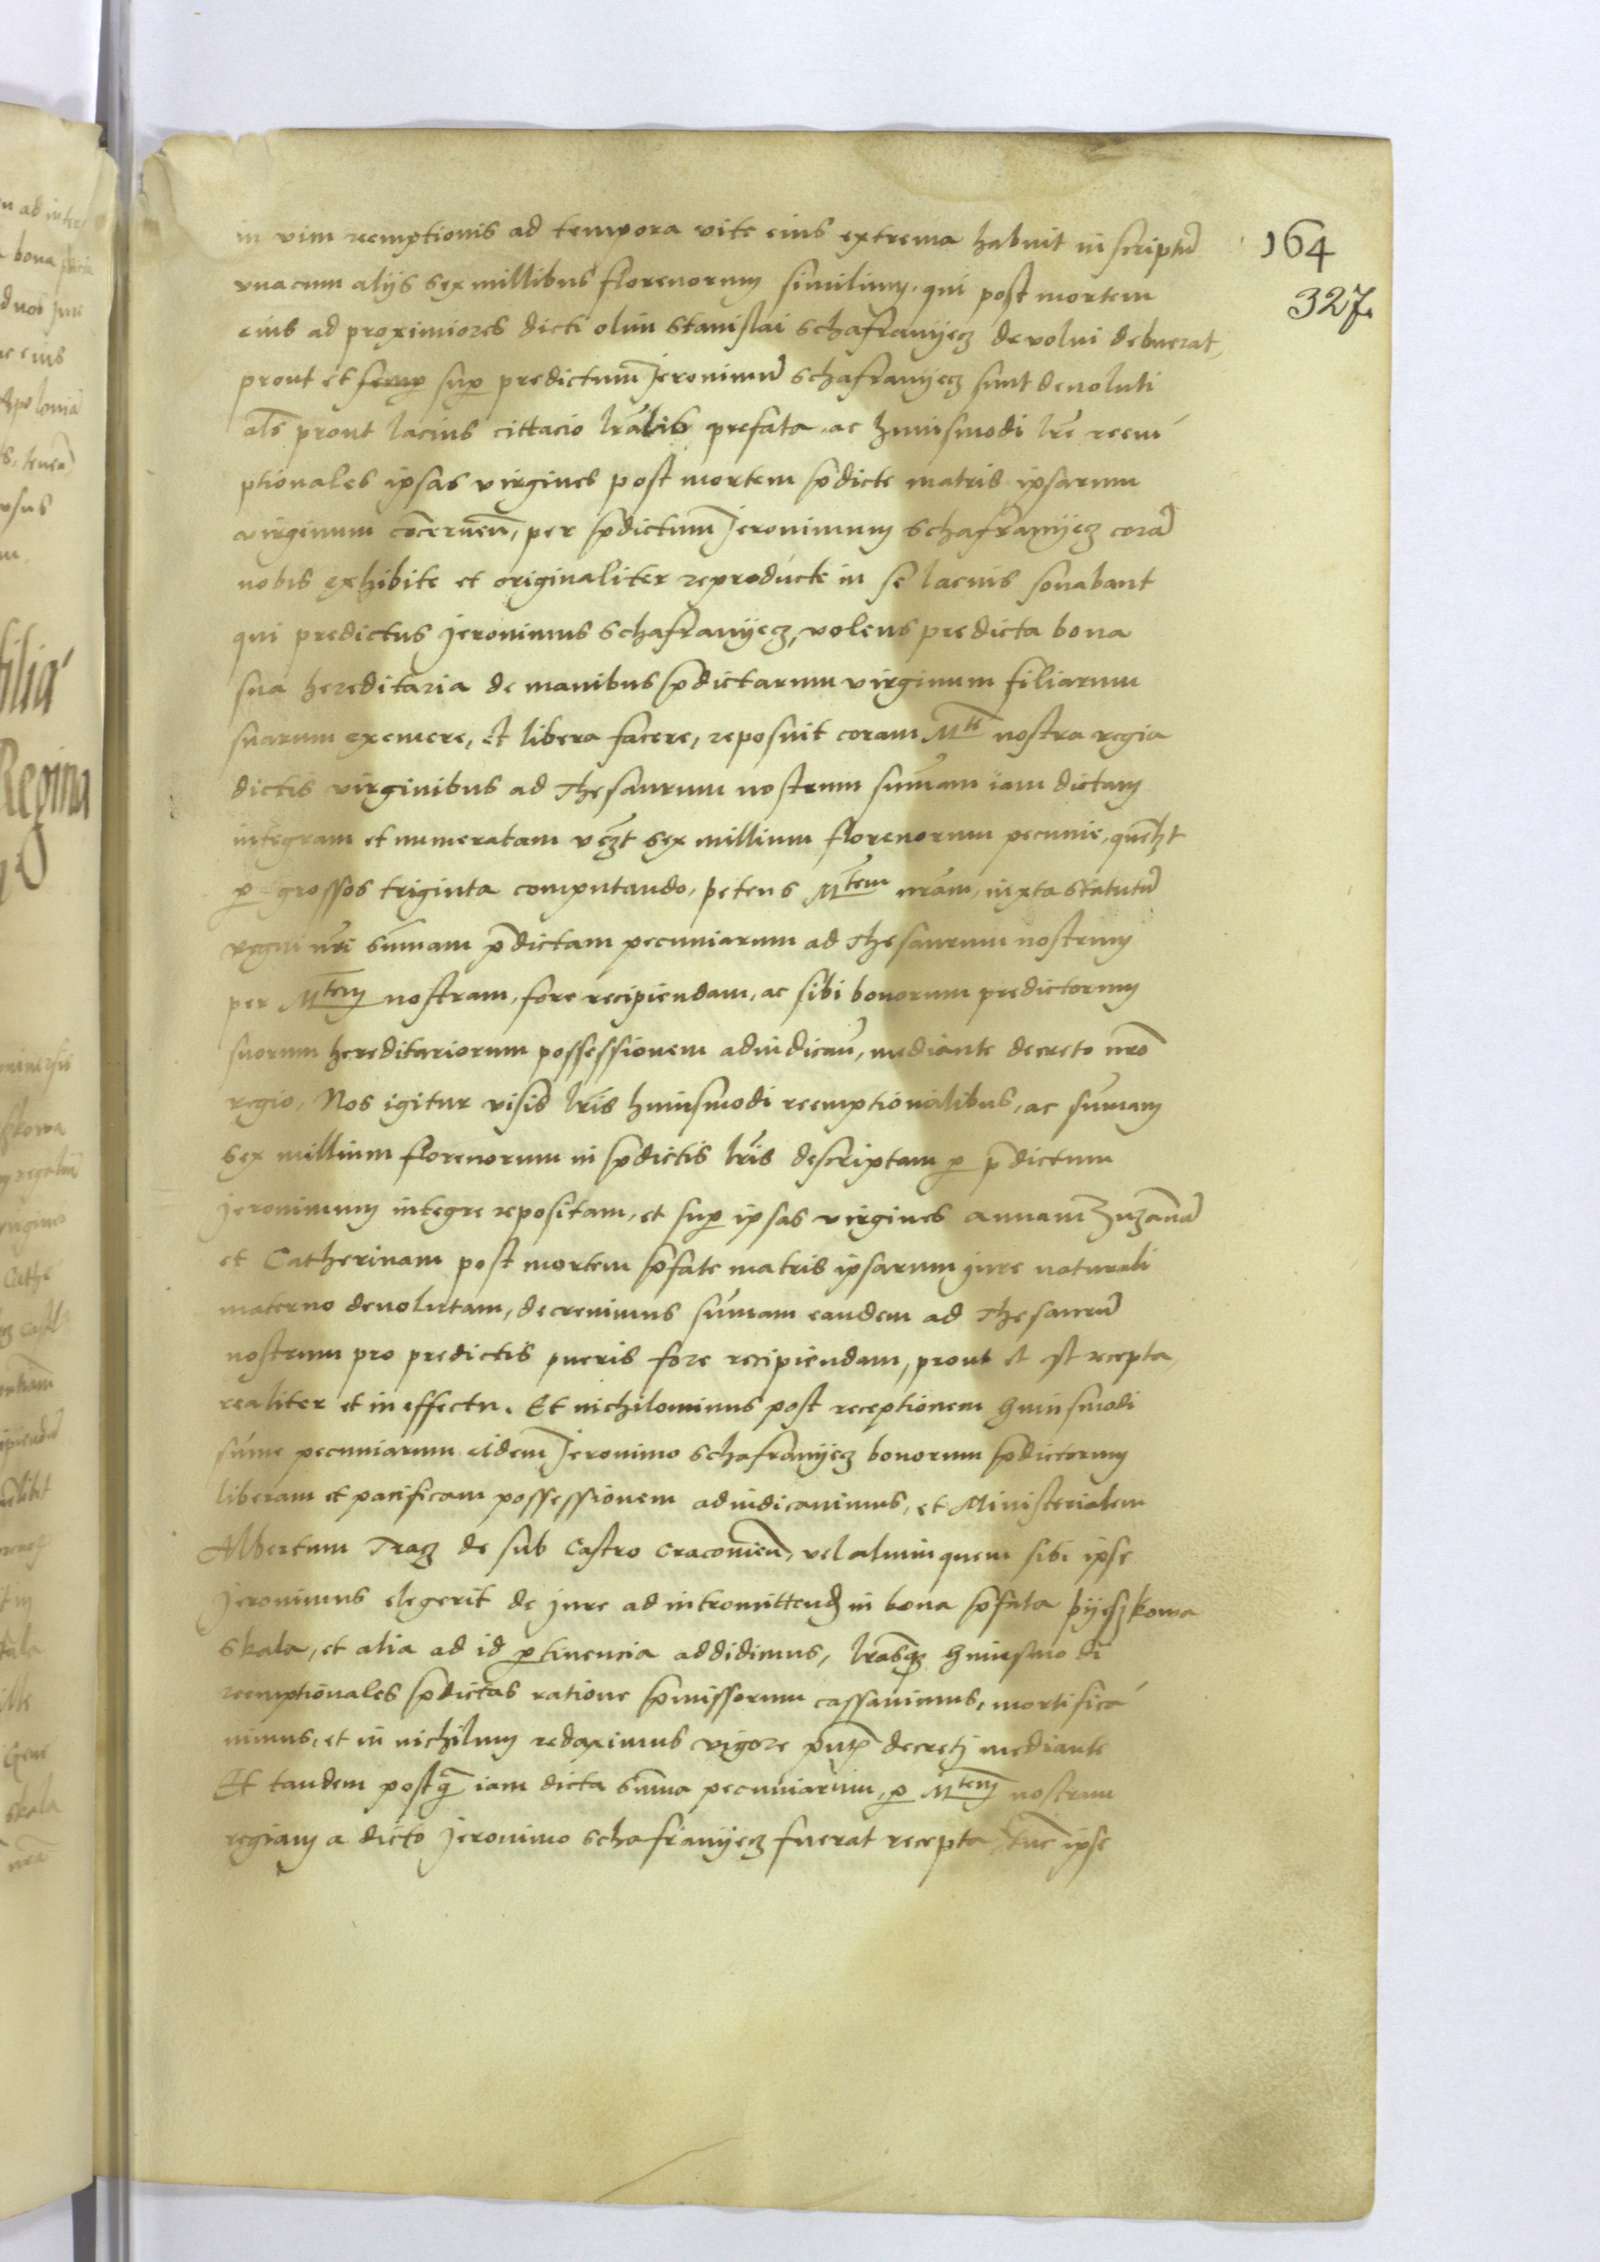 164
327.
in vim reemptionis ad tempora vite eius extrema habuit inscriptū
vnacum alijs sex millibus florenorum similium. qui post mortem
eius ad proximiores dicti olim Stanislai Schafranyecz devolui debuerat,
prout et sup predictum Jeronimū Schafranyecz sunt deuoluti
als prout lacius cittacio lralis prefata ac huiusmodi lre reem
ptionales ipsas virgines post mortem pdicte matris ipsarum
virginum cōcerneñ, per pdictum Jeronimum Schafranyecz corā
nobis exhibite et originaliter reproducte in se lacius sonabant
qui predictus Jeronimus Schafranyecz, volens predicta bona
sua hereditaria de manibus pdictarum virginum filiarum
suarum exemere, et libera facere, reposuit coram Mte nostra regia
dictis virginibus ad Thesaurum nostrum sūmam iam dictam
integram et numeratam vcзt sex millium florenorum pecunie, quēlзt
p grossos triginta computando, petens Mtem nrām, iuxta statutū
regni nri sūmam pdictam pecuniarum ad Thesaurum nostrum
per Mtem nostram, fore recipiendam, ac sibi bonorum predictorum
suorum hereditariorum possessionem adiudicañ, mediante decreto nrō
regio, Nos igitur visis lris huiusmodi reemptionalibus, ac sūmam
sex millium florenorum in pdictis lris descriptam p pdictum
Jeronimum integre repositam, et sup ipsas virgines Annam Zuzannā
et Catherinam post mortem pfate matris ipsarum jure naturali
materno deuolutam, decreuimus sūmam eandem ad Thesaurū
nostrum pro predictis pueris fore recipiendam, prout et est recepta,
realiter et in effectu. Et nichilominus post receptionem huiusmodi
sūme pecuniarum eidem Jeronimo Schafranyecz bonorum pdictorum
liberam et pacificam possessionem adiudicauimus, et Ministerialem
Albertum Tracz de sub Castro Cracouieñ, vel alium quem sibi ipse
Jeronimus elegerit de jure ad intromittend in bona pfata Pyeszkowa
Skala, et alia ad id ptinencia addidimus, lrasqз huiusmodi
reemptionales pdictas ratione pmissorum cassauimus, mortifica
uimus, et in nichilum redaximus vigore pntis decretj mediante
Et tandem postq̄ iam dicta sūma pecuniarum, p Mtem nostram
regiam a dicto Jeronimo Schafranyecz fuerat recepta, tunc ipse